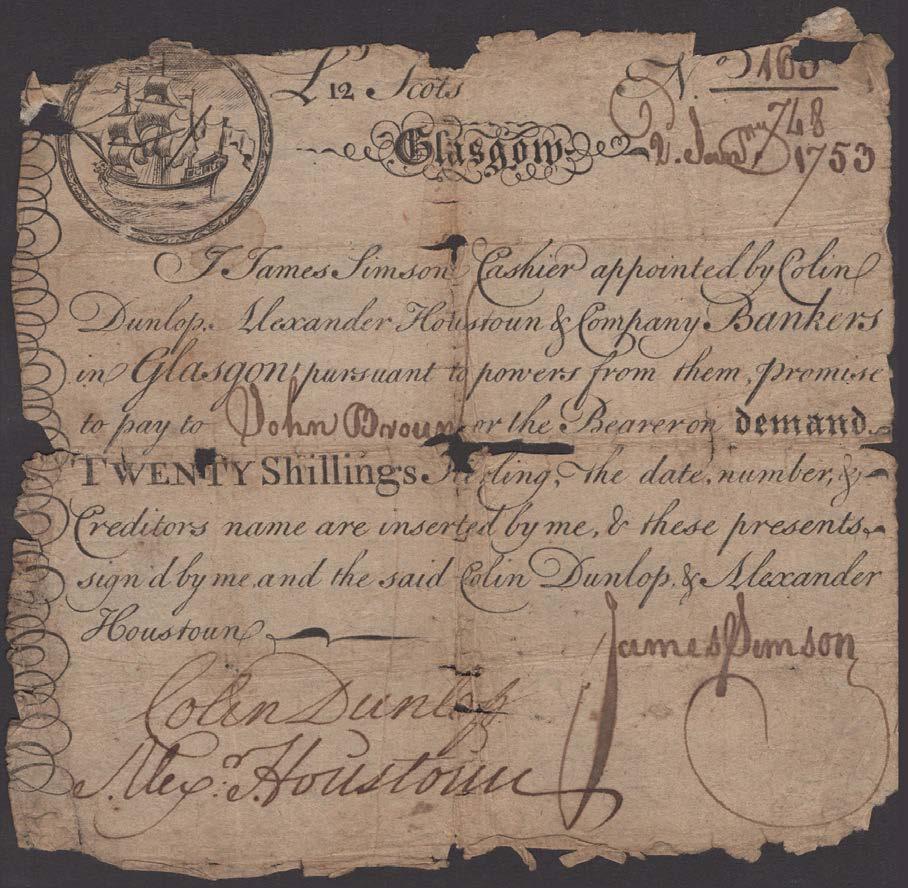 £12 Scots N.o
Glasgow 2. Jan.ry 748
1753
I James Simson Cashier appointed by Colin
Dunlop. Alexander Houstoun & Company Bankers
in Glasgow pursuant to powers from them, promise
to pay to John Broun or the Bearer on demand
TWENTY Shillings Sterling, the date, number, &
Creditors name are inserted by me, & these presents
sign'd by me and the said Colin Dunlop, & Alexander
Houstoun
James Simson
Colin Dunlop
Alexr. Houstoun